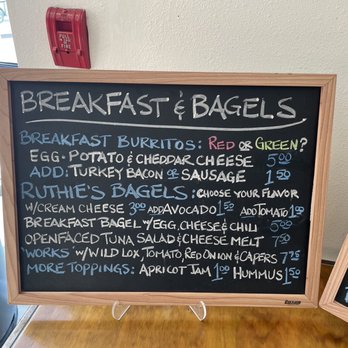 PULL IN
FIRE
BREAKFAST & BAGELS
BREAKFAST BURRITOS: RED OR GREEN?
EGG • POTATO & CHEDDAR CHEESE 5.00
ADD: TURKEY BACON OR SAUSAGE 1.50
RUTHIE'S BAGELS: CHOOSE YOUR FLAVOR
W/CREAM CHEESE 3.00 ADD AVOCADO 1.50 ADD TOMATO 1.00
BREAKFAST BAGEL W/ EGG, CHEESE & CHILI 5.00
OPENFACED TUNA SALAD & CHEESE MELT 7.50
'WORKS' W/ WILD LOX, TOMATO, RED ONION & CAPERS 7.75
MORE TOPPINGS: APRICOT JAM 1.00 HUMMUS 1.50